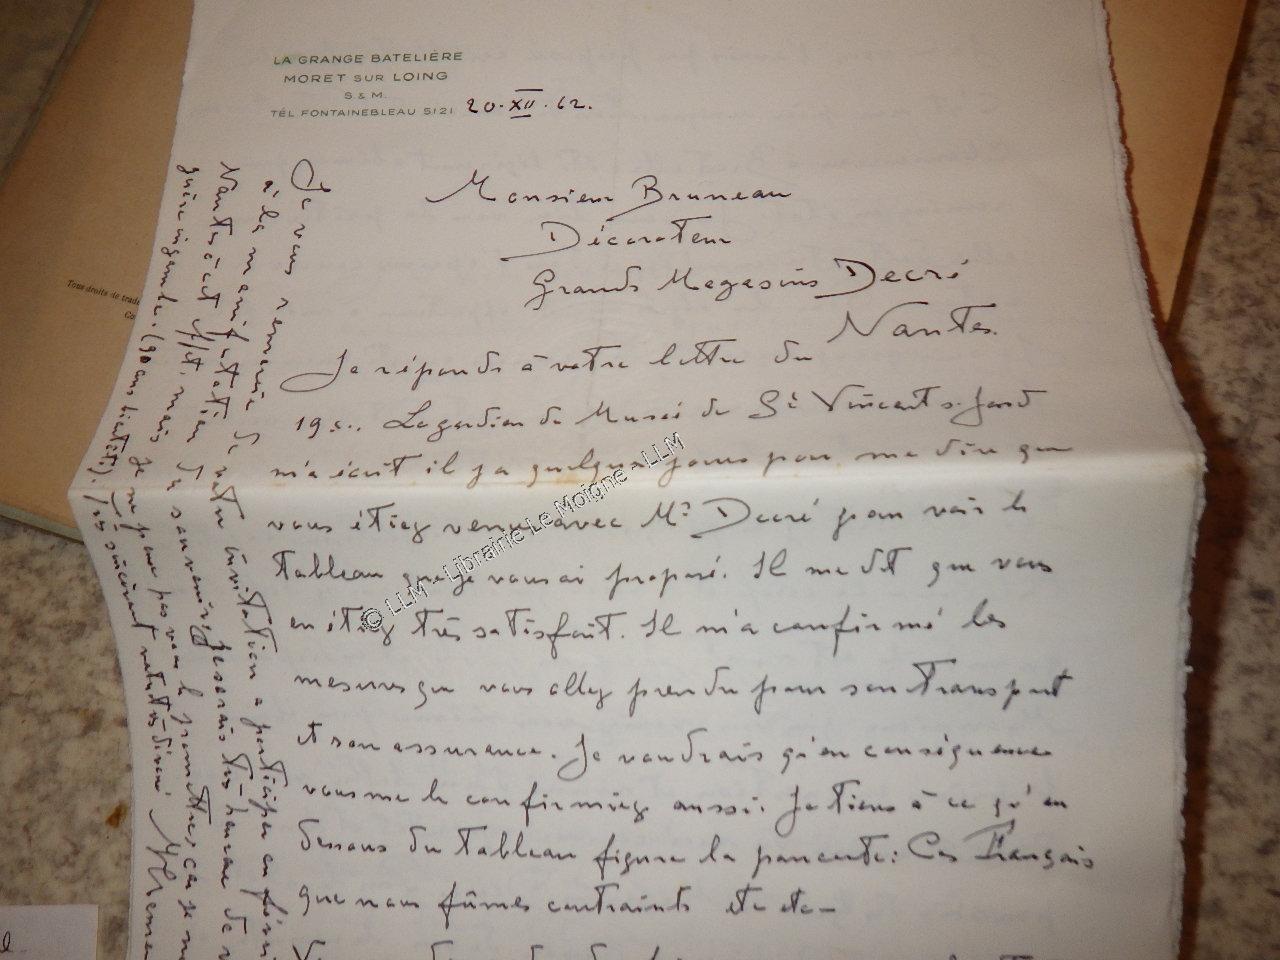 LA GRANGE BATELIÈRE
MORET SUR LOING
S & M.
TÉL FONTAINEBLEAU 5121
20.XII.62.
Monsieur Bruneau
Décorateur
Grands Magasins Decré
Nantes.
Je réponds à votre lettre du
19 c.. Le gardien du Musée de St Vincent s. Jard
m'a écrit il y a quelques jours pour me dire que
vous étiez venu avec Mr Decré pour voir le
tableau que je vous ai proposé. Il me dit que vous
en étiez très satisfait. Il m'a confirmé les
mesures que vous allez prendre pour son transport
et son assurance. Je voudrais qu'en conséquence
vous me le confirmiez aussi. Je tiens à ce qu'en
dessous du tableau figure la pancarte: Ces Français
que nous fûmes contraints etc etc—
Je vous remercie de votre invitation a participer en
à la manifestation du souvenir. Je serais très heureux de
Nantes à cet effet, mais je ne peux pas vous le promettre, car je ne
guère ingambe (90 ans bientôt). Très sincèrement votre dévoué
Tous droits de trad
© LLM - Librairie Le Moigne - LLM